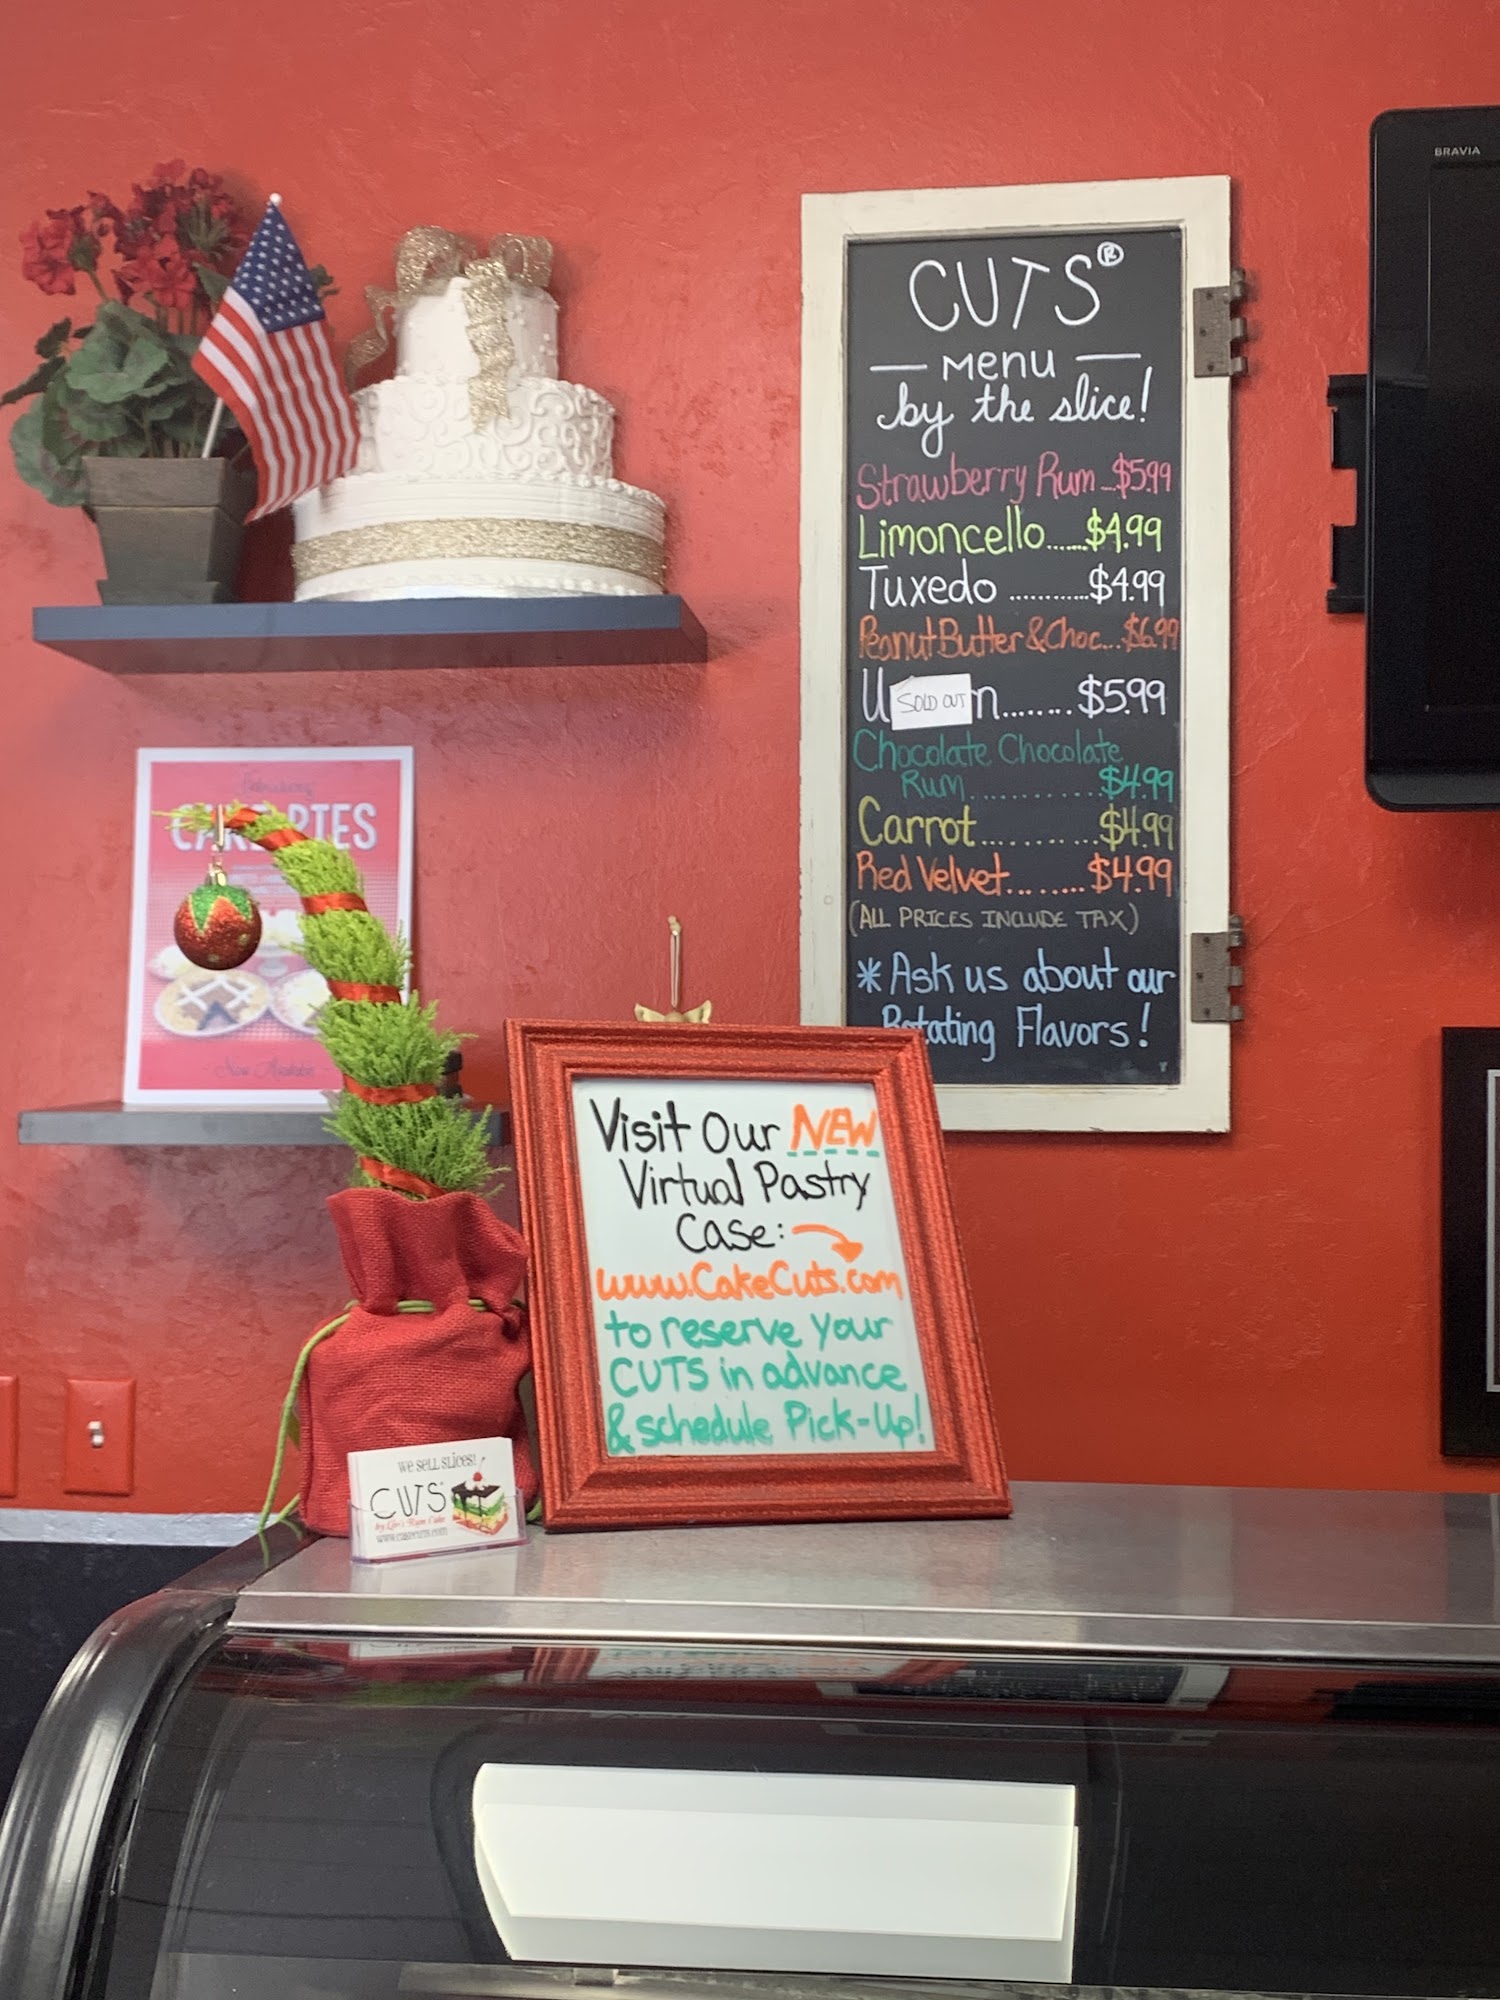 BRAVIA
CUTS®
— MENU —
by the slice!
Strawberry Rum...$5.99
Limoncello.......$4.99
Tuxedo ...........$4.99
Peanut Butter & Choc...$6.99
SOLD OUT
$5.99
Chocolate Chocolate
Rum............$4.99
Carrot..........$4.99
Red Velvet.........$4.99
(ALL PRICES INCLUDE TAX)
*Ask us about our
Rotating Flavors!
Now Available
Visit Our NEW
Virtual Pastry
Case:
www.CakeCuts.com
to reserve your
CUTS in advance
& schedule Pick-Up!
We sell slices!
CUTS
www.cakecuts.com